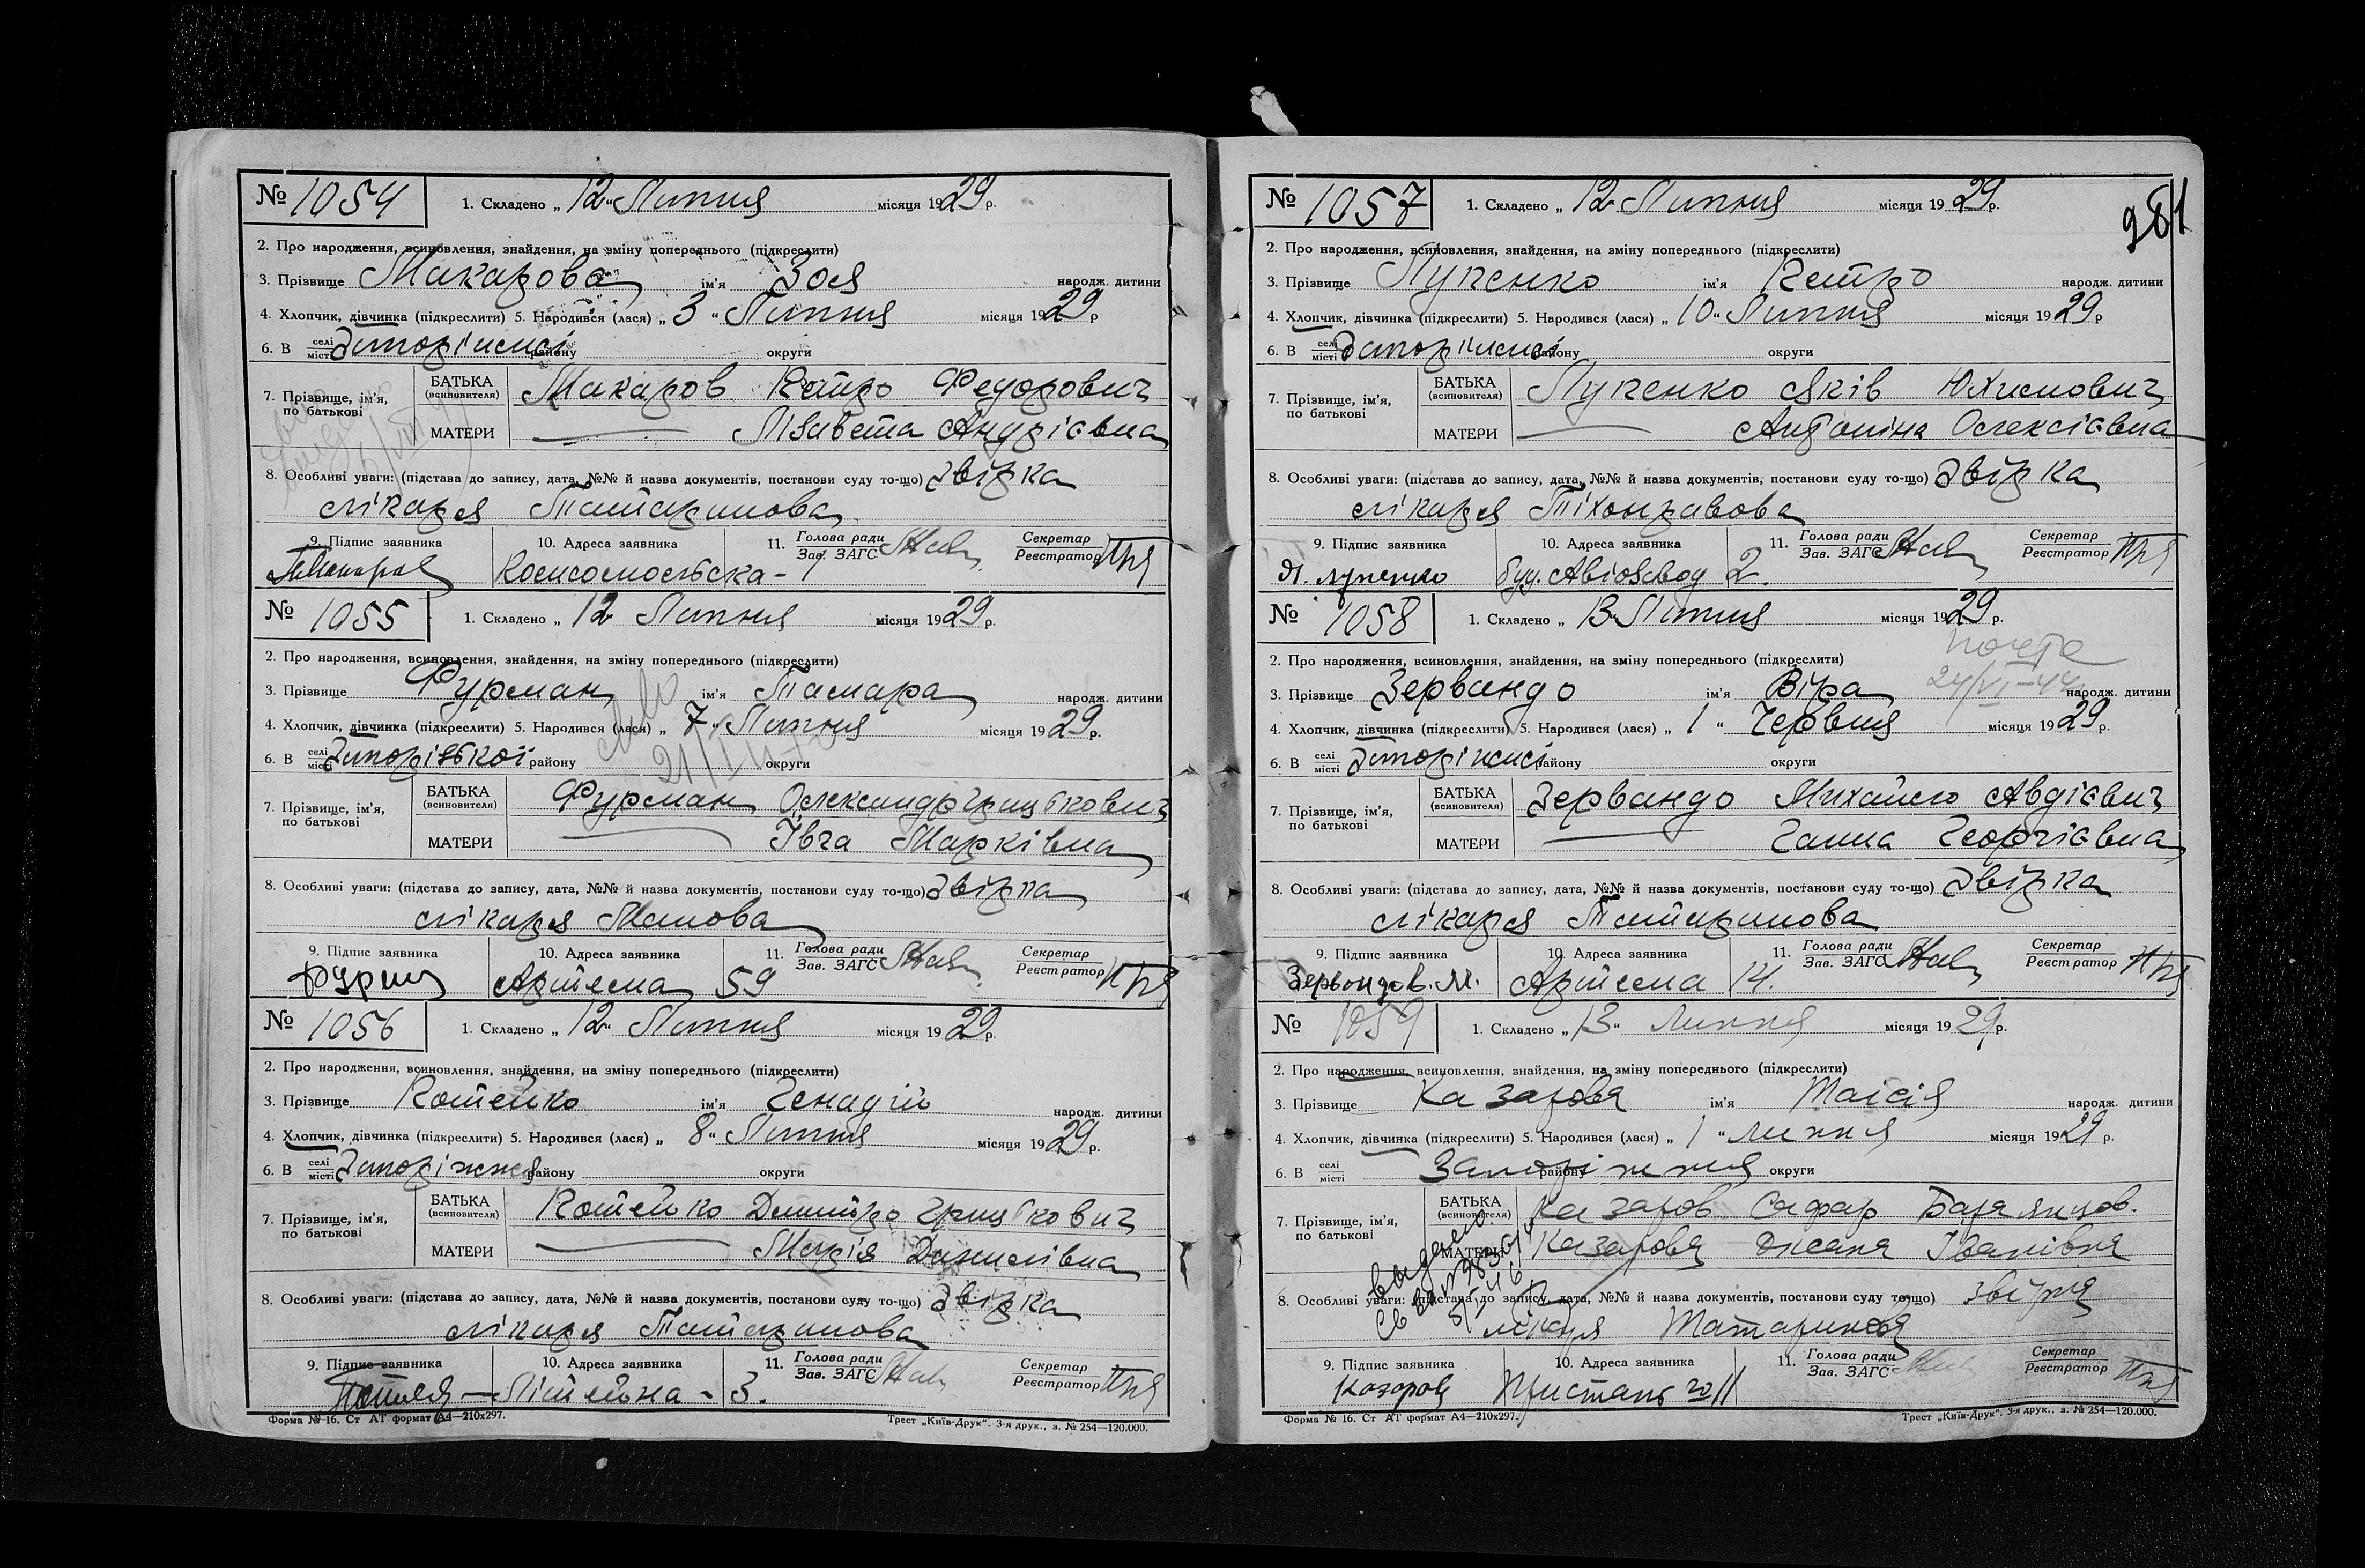 № 1054 1. Складено „ 12 “ Липня місяця 1929 р.
2. Про народження, всиновлення, знайдення, на зміну попереднього (підкреслити)
3. Прізвище Макарова ім'я Зоя народж. дитини
4. Хлопчик, дівчинка (підкреслити) 5. Народився (лася) „ 3 “ Липня місяця 1929 р
6. В селі місті Запоріжжі району округи
7. Прізвище, ім'я, по батькові БАТЬКА (всиновителя) Макаров Петро Федорович
МАТЕРИ Лізавета Андріївна
8. Особливі уваги: (підстава до запису, дата, №№ й назва документів, постанови суду то-що) Звірка
лікаря Татаринова
9. Підпис заявника 10. Адреса заявника 11. Голова ради Зав. ЗАГС Секретар Реєстратор
Комсомольська - 1
№ 1055 1. Складено „ 12 Липня місяця 1929 р.
2. Про народження, всиновлення, знайдення, на зміну попереднього (підкреслити)
3. Прізвище Фурман ім'я Тамара народж. дитини
4. Хлопчик, дівчинка (підкреслити) 5. Народився (лася) „ 7 “ Липня місяця 1929 р.
6. В селі місті району округи
7. Прізвище, ім'я, по батькові БАТЬКА (всиновителя) Фурман Олександр Грицькович
МАТЕРИ Івга Марківна
8. Особливі уваги: (підстава до запису, дата, №№ й назва документів, постанови суду то-що) Звірка
лікаря
9. Підпис заявника 10. Адреса заявника 11. Голова ради Зав. ЗАГС Секретар Реєстратор
Артема 59
№ 1056 1. Складено „ 12 “ Липня місяця 1929 р.
2. Про народження, всиновлення, знайдення, на зміну попереднього (підкреслити)
3. Прізвище Котейко ім'я Генадій народж. дитини
4. Хлопчик, дівчинка (підкреслити) 5. Народився (лася) „ 8 “ Липня місяця 1929 р.
6. В селі місті Запоріжжя району округи
7. Прізвище, ім'я, по батькові БАТЬКА (всиновителя) Котейко Дмитро Грицькович
МАТЕРИ Марія Данилівна
8. Особливі уваги: (підстава до запису, дата, №№ й назва документів, постанови суду то-що) Звірка
лікаря Татаринова
9. Підпис заявника 10. Адреса заявника 11. Голова ради Зав. ЗАГС Секретар Реєстратор
Літейна - 3.
Форма № 16. Ст АТ формат А4—210х297. Трест „Київ-Друк“. 3-я друк., з. № 254—120.000.
281
№ 1057 1. Складено „ 12 “ Липня місяця 1929 р.
2. Про народження, всиновлення, знайдення, на зміну попереднього (підкреслити)
3. Прізвище Лупенко ім'я Петро народж. дитини
4. Хлопчик, дівчинка (підкреслити) 5. Народився (лася) „ 10 “ Липня місяця 1929 р
6. В селі місті Запоріжжі району округи
7. Прізвище, ім'я, по батькові БАТЬКА (всиновителя) Лупенко Яків Юхимович
МАТЕРИ Антоніна Олексіївна
8. Особливі уваги: (підстава до запису, дата, №№ й назва документів, постанови суду то-що) Звірка
лікаря Тіхонравова
9. Підпис заявника 10. Адреса заявника 11. Голова ради Зав. ЗАГС Секретар Реєстратор
Я. Лупенко буд. Авіозавод 2.
№ 1058 1. Складено „ 13 “ Липня місяця 1929 р.
2. Про народження, всиновлення, знайдення, на зміну попереднього (підкреслити)
3. Прізвище Зервандо ім'я Віра народж. дитини
4. Хлопчик, дівчинка (підкреслити) 5. Народився (лася) „ 1 “ Червня місяця 1929 р.
6. В селі місті Запоріжжі району округи
7. Прізвище, ім'я, по батькові БАТЬКА (всиновителя) Зервандо Михайло Авдієвич
МАТЕРИ Ганна Георгієвна
8. Особливі уваги: (підстава до запису, дата, №№ й назва документів, постанови суду то-що) Звірка
лікаря Татаринова
9. Підпис заявника 10. Адреса заявника 11. Голова ради Зав. ЗАГС Секретар Реєстратор
Артема 14.
№ 1059 1. Складено „ 13 “ Липня місяця 1929 р.
2. Про народження, всиновлення, знайдення, на зміну попереднього (підкреслити)
3. Прізвище Казарова ім'я Таісія народж. дитини
4. Хлопчик, дівчинка (підкреслити) 5. Народився (лася) „ 1 “ липня місяця 1929 р.
6. В селі місті Запоріжжя району округи
7. Прізвище, ім'я, по батькові БАТЬКА (всиновителя) Казаров Сафар
МАТЕРИ Казарова Оксана Іванівна
8. Особливі уваги: (підстава до запису, дата, №№ й назва документів, постанови суду то-що) звірка
лікаря Татаринова
9. Підпис заявника 10. Адреса заявника 11. Голова ради Зав. ЗАГС Секретар Реєстратор
Казаров Пристань 11
Форма № 16. Ст АТ формат А4—210х297. Трест „Київ-Друк“. 3-я друк., з. № 254—120.000.